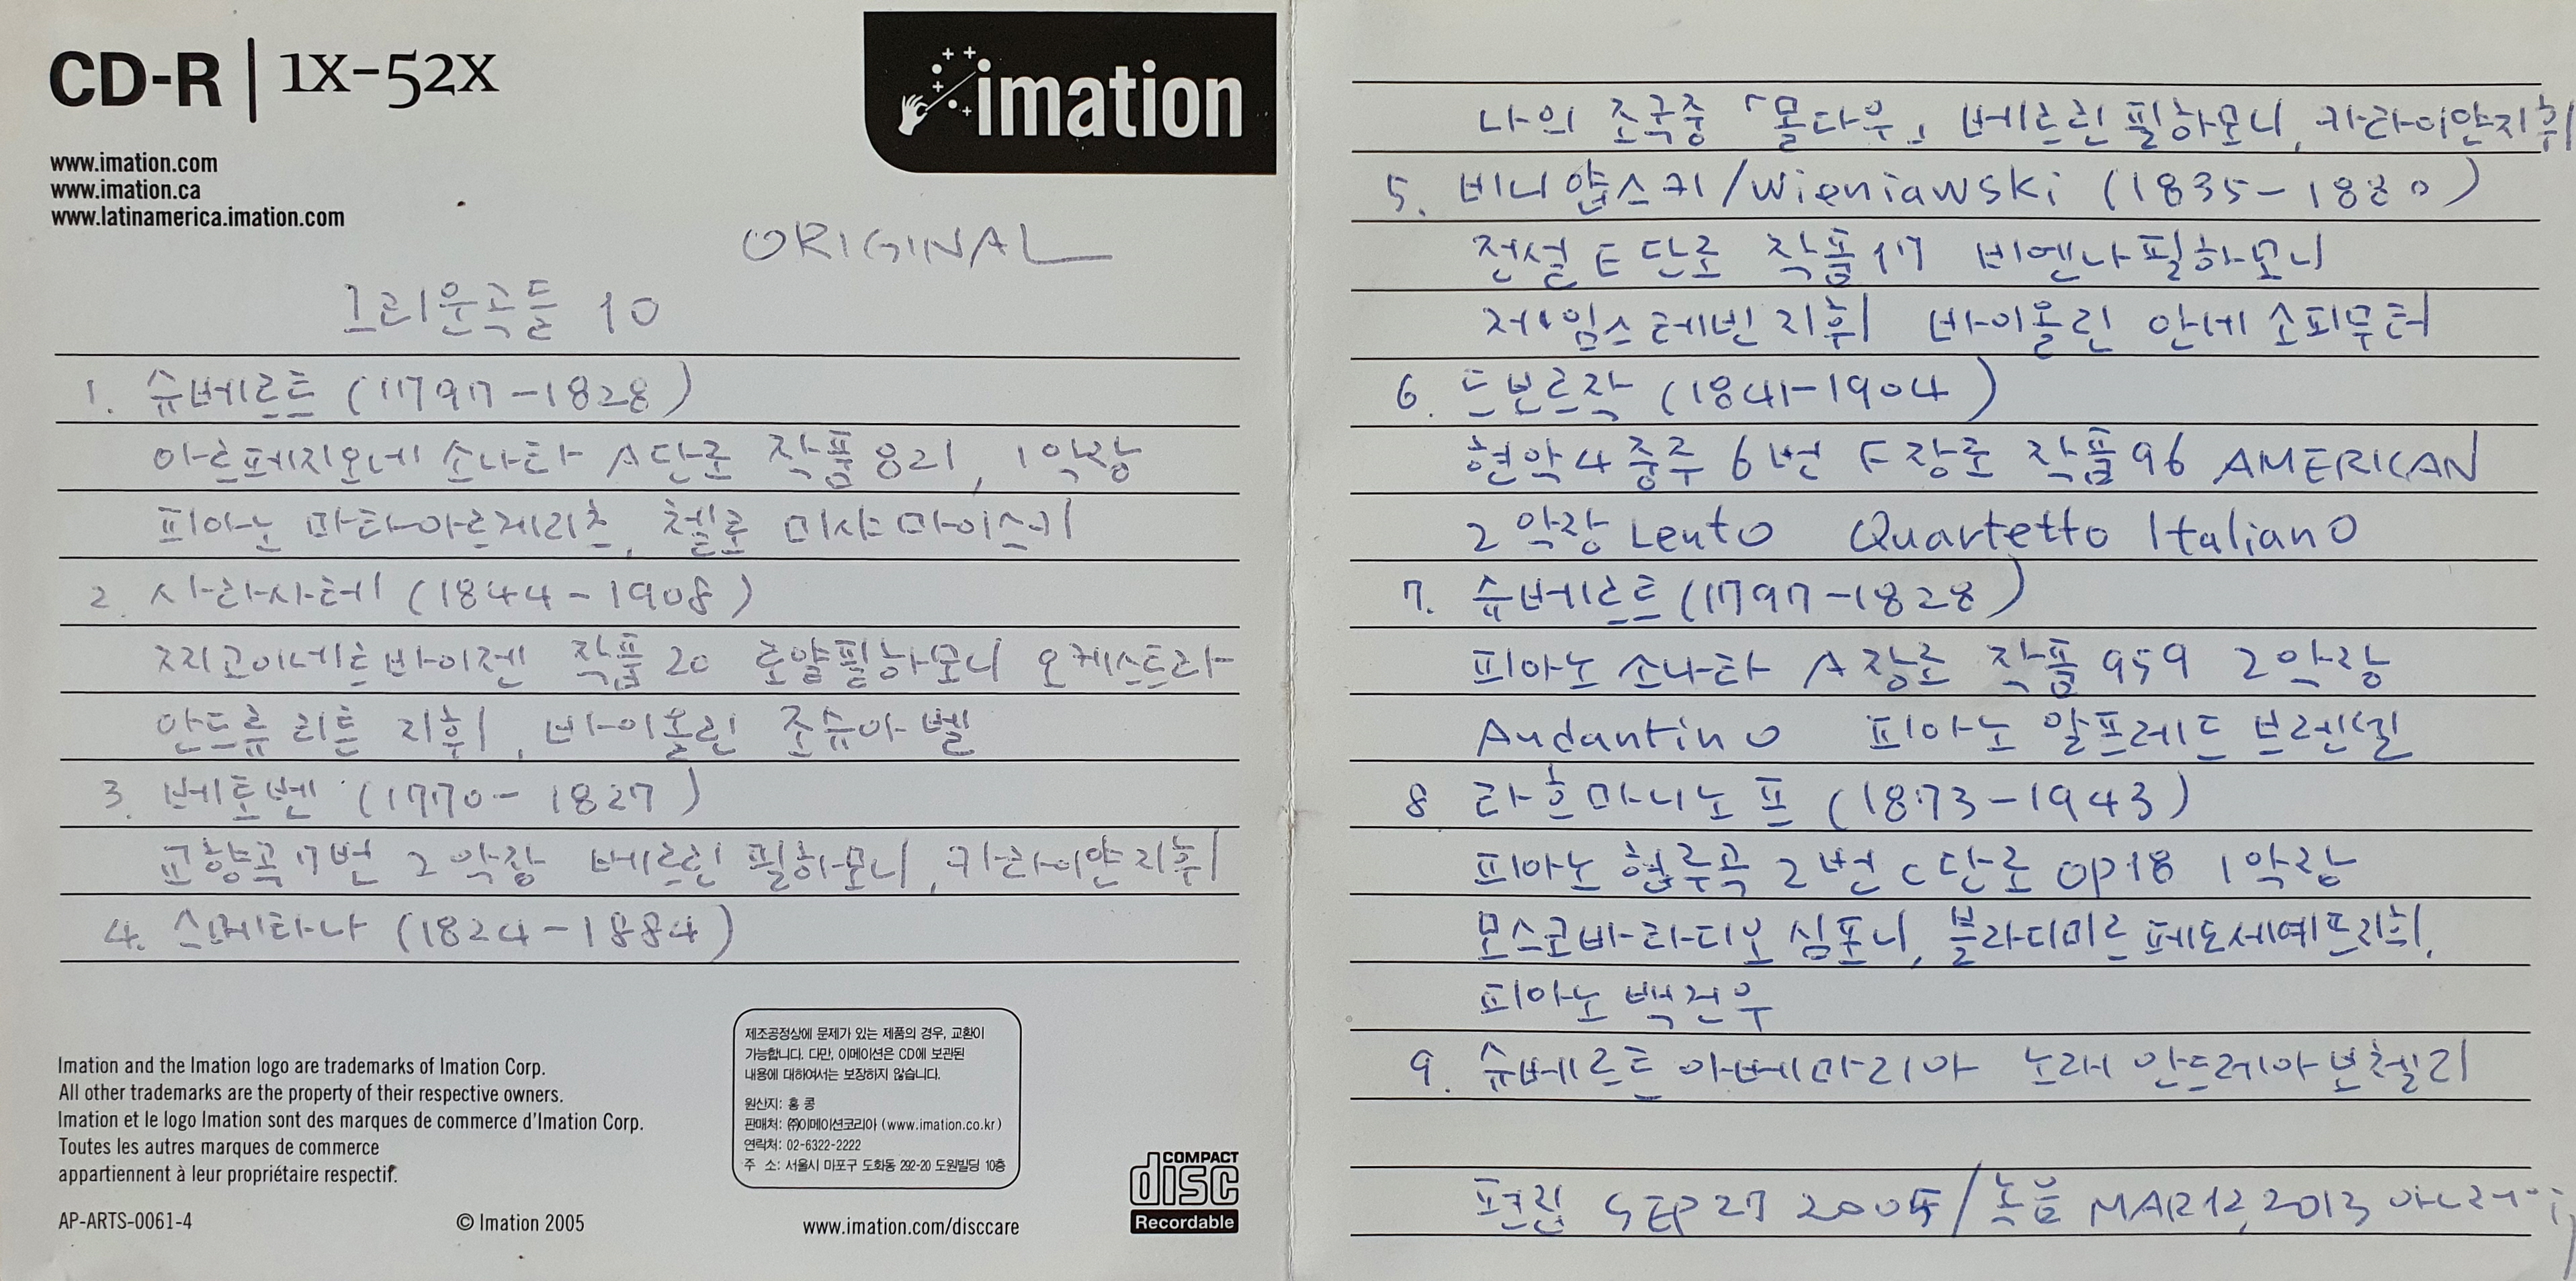 CD-R | 1X-52X
imation
www.imation.com
www.imation.ca
www.latinamerica.imation.com
ORIGINAL
그리운곡들 10
1. 슈베르트 (1797-1828)
아르페지오네 소나타 A단조 작품 821, 1악장
피아노 마타아르게리츠, 첼로 미샤마이스키
2. 사라사테 (1844-1908)
찌고이네르바이젠 작품20 로얄필하모니 오케스트라
안드류 리튼 지휘, 바이올린 조슈아벨
3. 베토벤 (1770-1827)
교향곡7번 2악장 베르린 필하모니, 카라이얀지휘
4. 스메타나 (1824-1884)
Imation and the Imation logo are trademarks of Imation Corp.
All other trademarks are the property of their respective owners.
Imation et le logo Imation sont des marques de commerce d'Imation Corp.
Toutes les autres marques de commerce
appartiennent à leur propriétaire respectif.
AP-ARTS-0061-4
© Imation 2005
제조공정상에 문제가 있는 제품의 경우, 교환이
가능합니다. 다만, 이메이션은 CD에 보관된
내용에 대하여서는 보장하지 않습니다.
원산지: 홍 콩
판매처: ㈜이메이션코리아 (www.imation.co.kr)
연락처: 02-6322-2222
주 소: 서울시 마포구 도화동 292-20 도원빌딩 10층
www.imation.com/disccare
COMPACT
disc
Recordable
나의 조국중 「몰다우」 베르린필하모니, 카라이얀지휘
5. 비니얍스키/Wieniawski (1835-1880)
전설 E단조 작품17 비엔나필하모니
제임스레빈지휘 바이올린 안네소피무터
6. 드보르작 (1841-1904)
현악4중주 6번 F장조 작품96 AMERICAN
2악장 Lento Quartetto Italiano
7. 슈베르트 (1797-1828)
피아노 소나타 A장조 작품 959 2악장
Andantino 피아노 알프레드 브렌델
8 라흐마니노프 (1873-1943)
피아노 협주곡 2번 C단조 OP18 1악장
모스코바라디오 심포니, 블라디미르페도세예프지휘,
피아노 백건우
9. 슈베르트 아베마리아 노래 안드레아보첼리
편집 SEP 27 2005/녹음 MAR 12, 2013